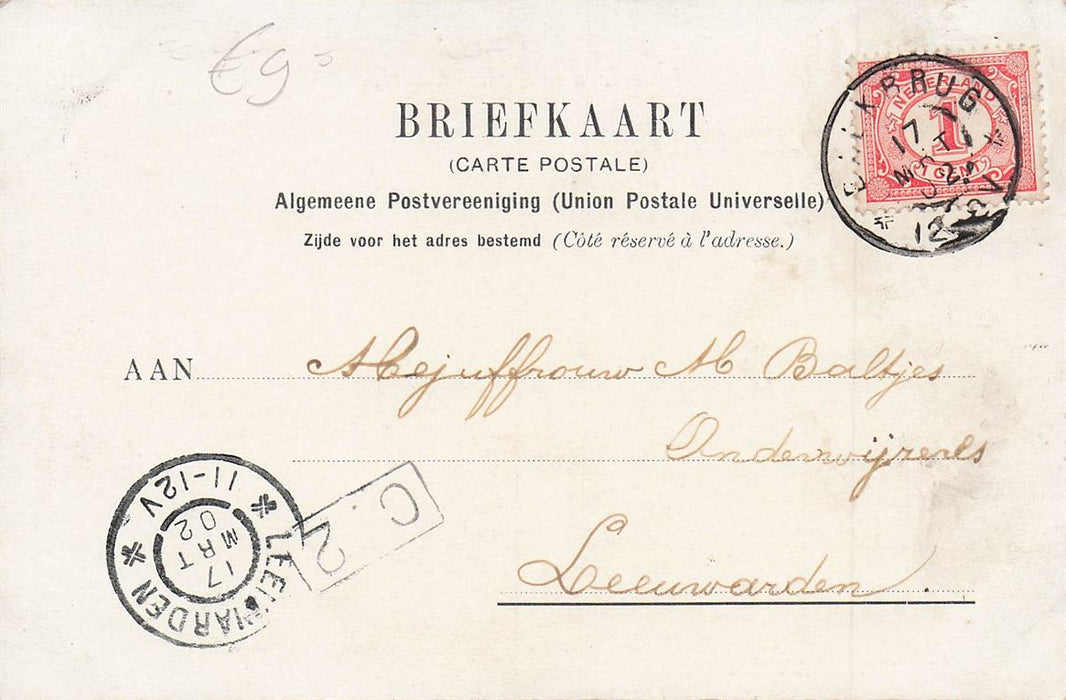 €9-
BRIEFKAART
(CARTE POSTALE)
Algemeene Postvereeniging (Union Postale Universelle)
Zijde voor het adres bestemd (Côté réservé à l'adresse.)
NEDERLAND
1
17 MRT
12
AAN Mejuffrouw M Baltjes
Onderwijzeres
Leeuwarden.
LEEUWARDEN
11-12V
17
MRT
02
C. 2